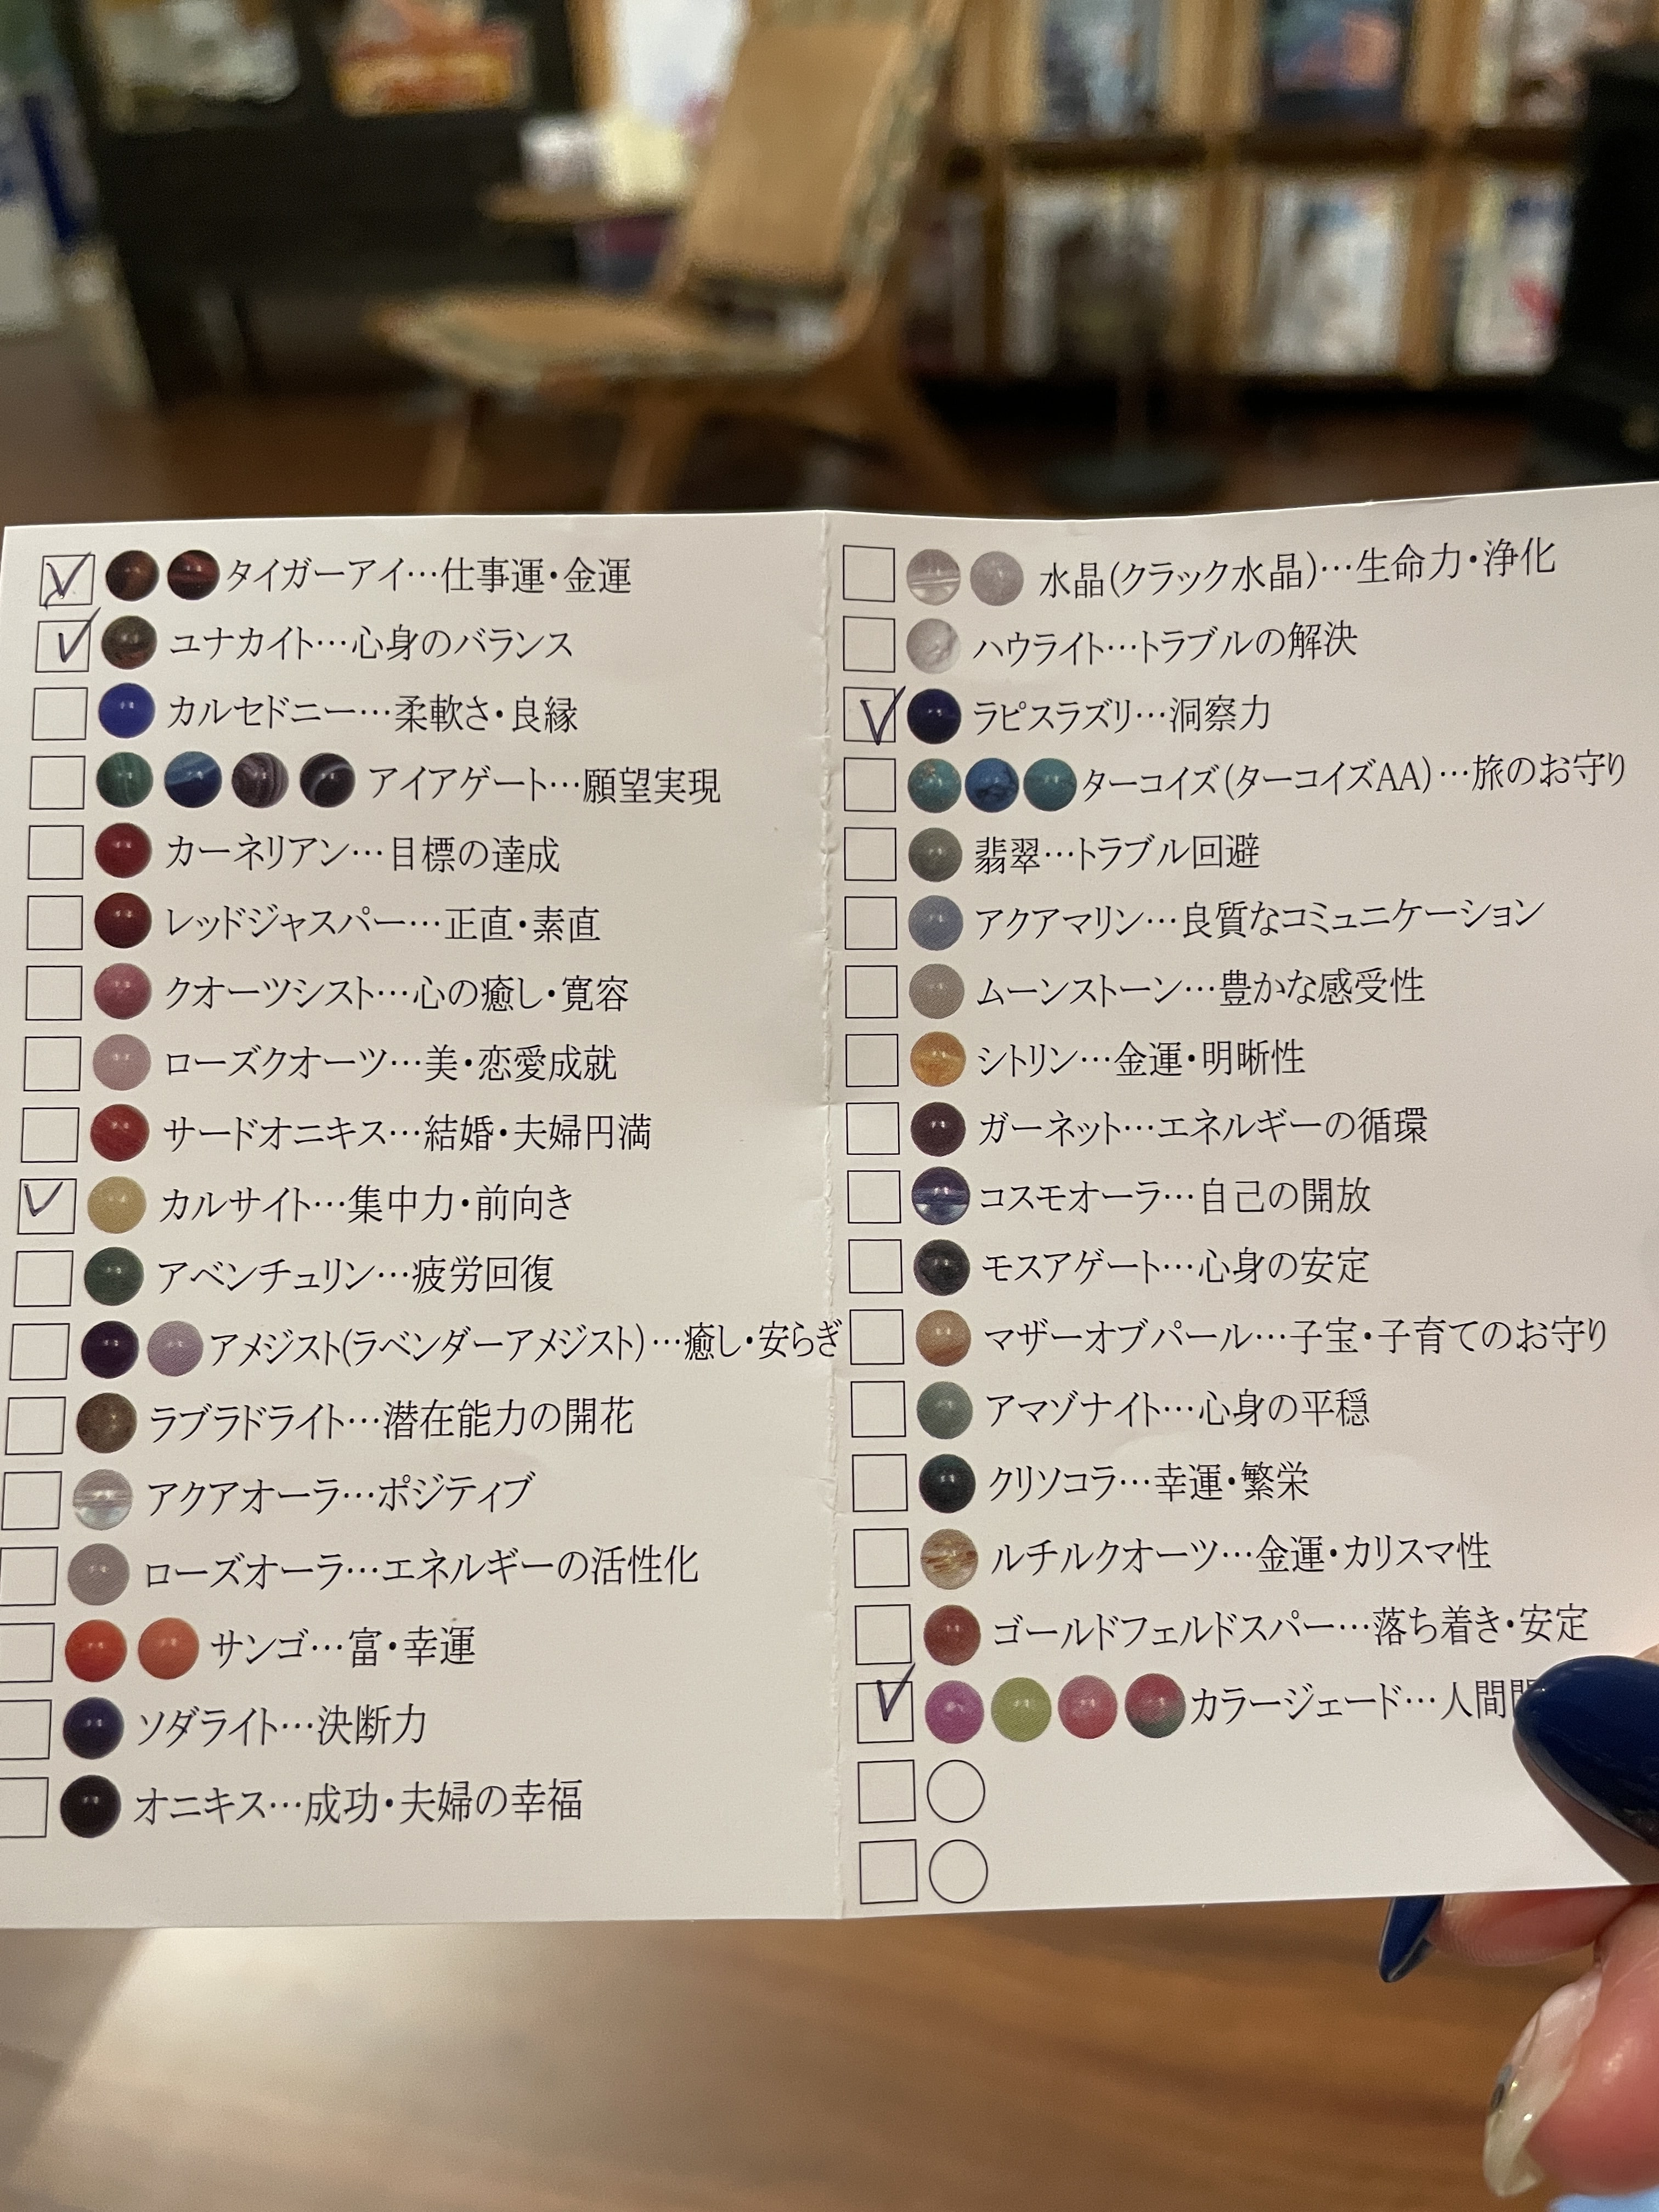 タイガーアイ…仕事運・金運
ユナカイト…心身のバランス
カルセドニー…柔軟さ・良縁
アイアゲート…願望実現
カーネリアン…目標の達成
レッドジャスパー…正直・素直
クオーツシスト…心の癒し・寛容
ローズクオーツ…美・恋愛成就
サードオニキス…結婚・夫婦円満
カルサイト…集中力・前向き
アベンチュリン…疲労回復
アメジスト(ラベンダーアメジスト)…癒し・安らぎ
ラブラドライト…潜在能力の開花
アクアオーラ…ポジティブ
ローズオーラ…エネルギーの活性化
サンゴ…富・幸運
ソダライト…決断力
オニキス…成功・夫婦の幸福
水晶(クラック水晶)…生命力・浄化
ハウライト…トラブルの解決
ラピスラズリ…洞察力
ターコイズ(ターコイズAA)…旅のお守り
翡翠…トラブル回避
アクアマリン…良質なコミュニケーション
ムーンストーン…豊かな感受性
シトリン…金運・明晰性
ガーネット…エネルギーの循環
コスモオーラ…自己の開放
モスアゲート…心身の安定
マザーオブパール…子宝・子育てのお守り
アマゾナイト…心身の平穏
クリソコラ…幸運・繁栄
ルチルクオーツ…金運・カリスマ性
ゴールドフェルドスパー…落ち着き・安定
カラージェード…人間